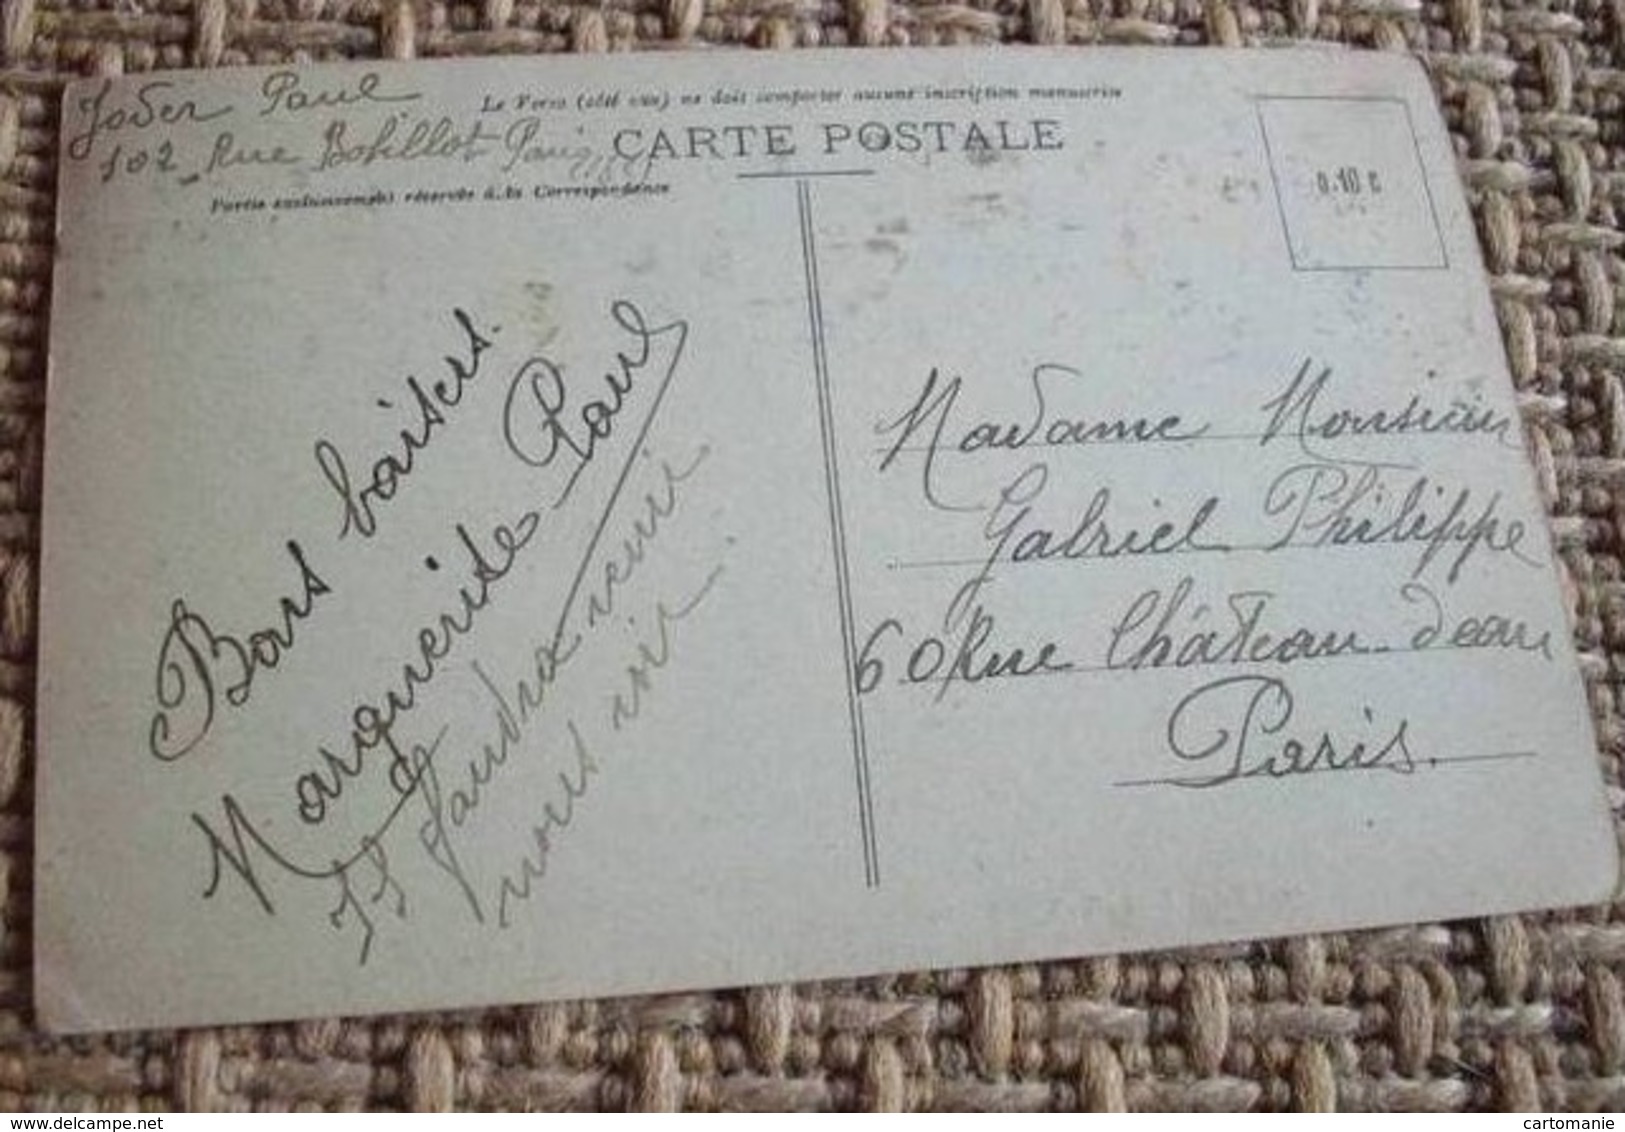 Joder Paul
102 Rue Bobillot Paris
Le Verso (côté vue) ne doit comporter aucune inscription manuscrite
CARTE POSTALE
Partie exclusivement réservée à la Correspondance
0.10 c
Bons baisers.
Marguerite Paul
Il faudra venir
nous voir.
Madame Monsieur
Gabriel Philippe
60 Rue Château-deau
Paris.
www.delcampe.net
cartomanie